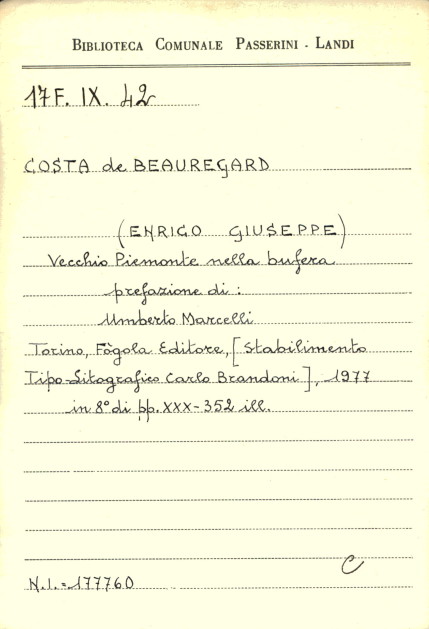 BIBLIOTECA COMUNALE PASSERINI - LANDI
17F. IX. 42
COSTA de BEAUREGARD
(ENRICO GIUSEPPE)
Vecchio Piemonte nella bufera
prefazione di :
Umberto Marcelli
Torino, Fògola Editore, [Stabilimento
Tipo-Litografico Carlo Brandoni], 1977
in 8° di pp. XXX-352 ill.
C
N.I. = 177760